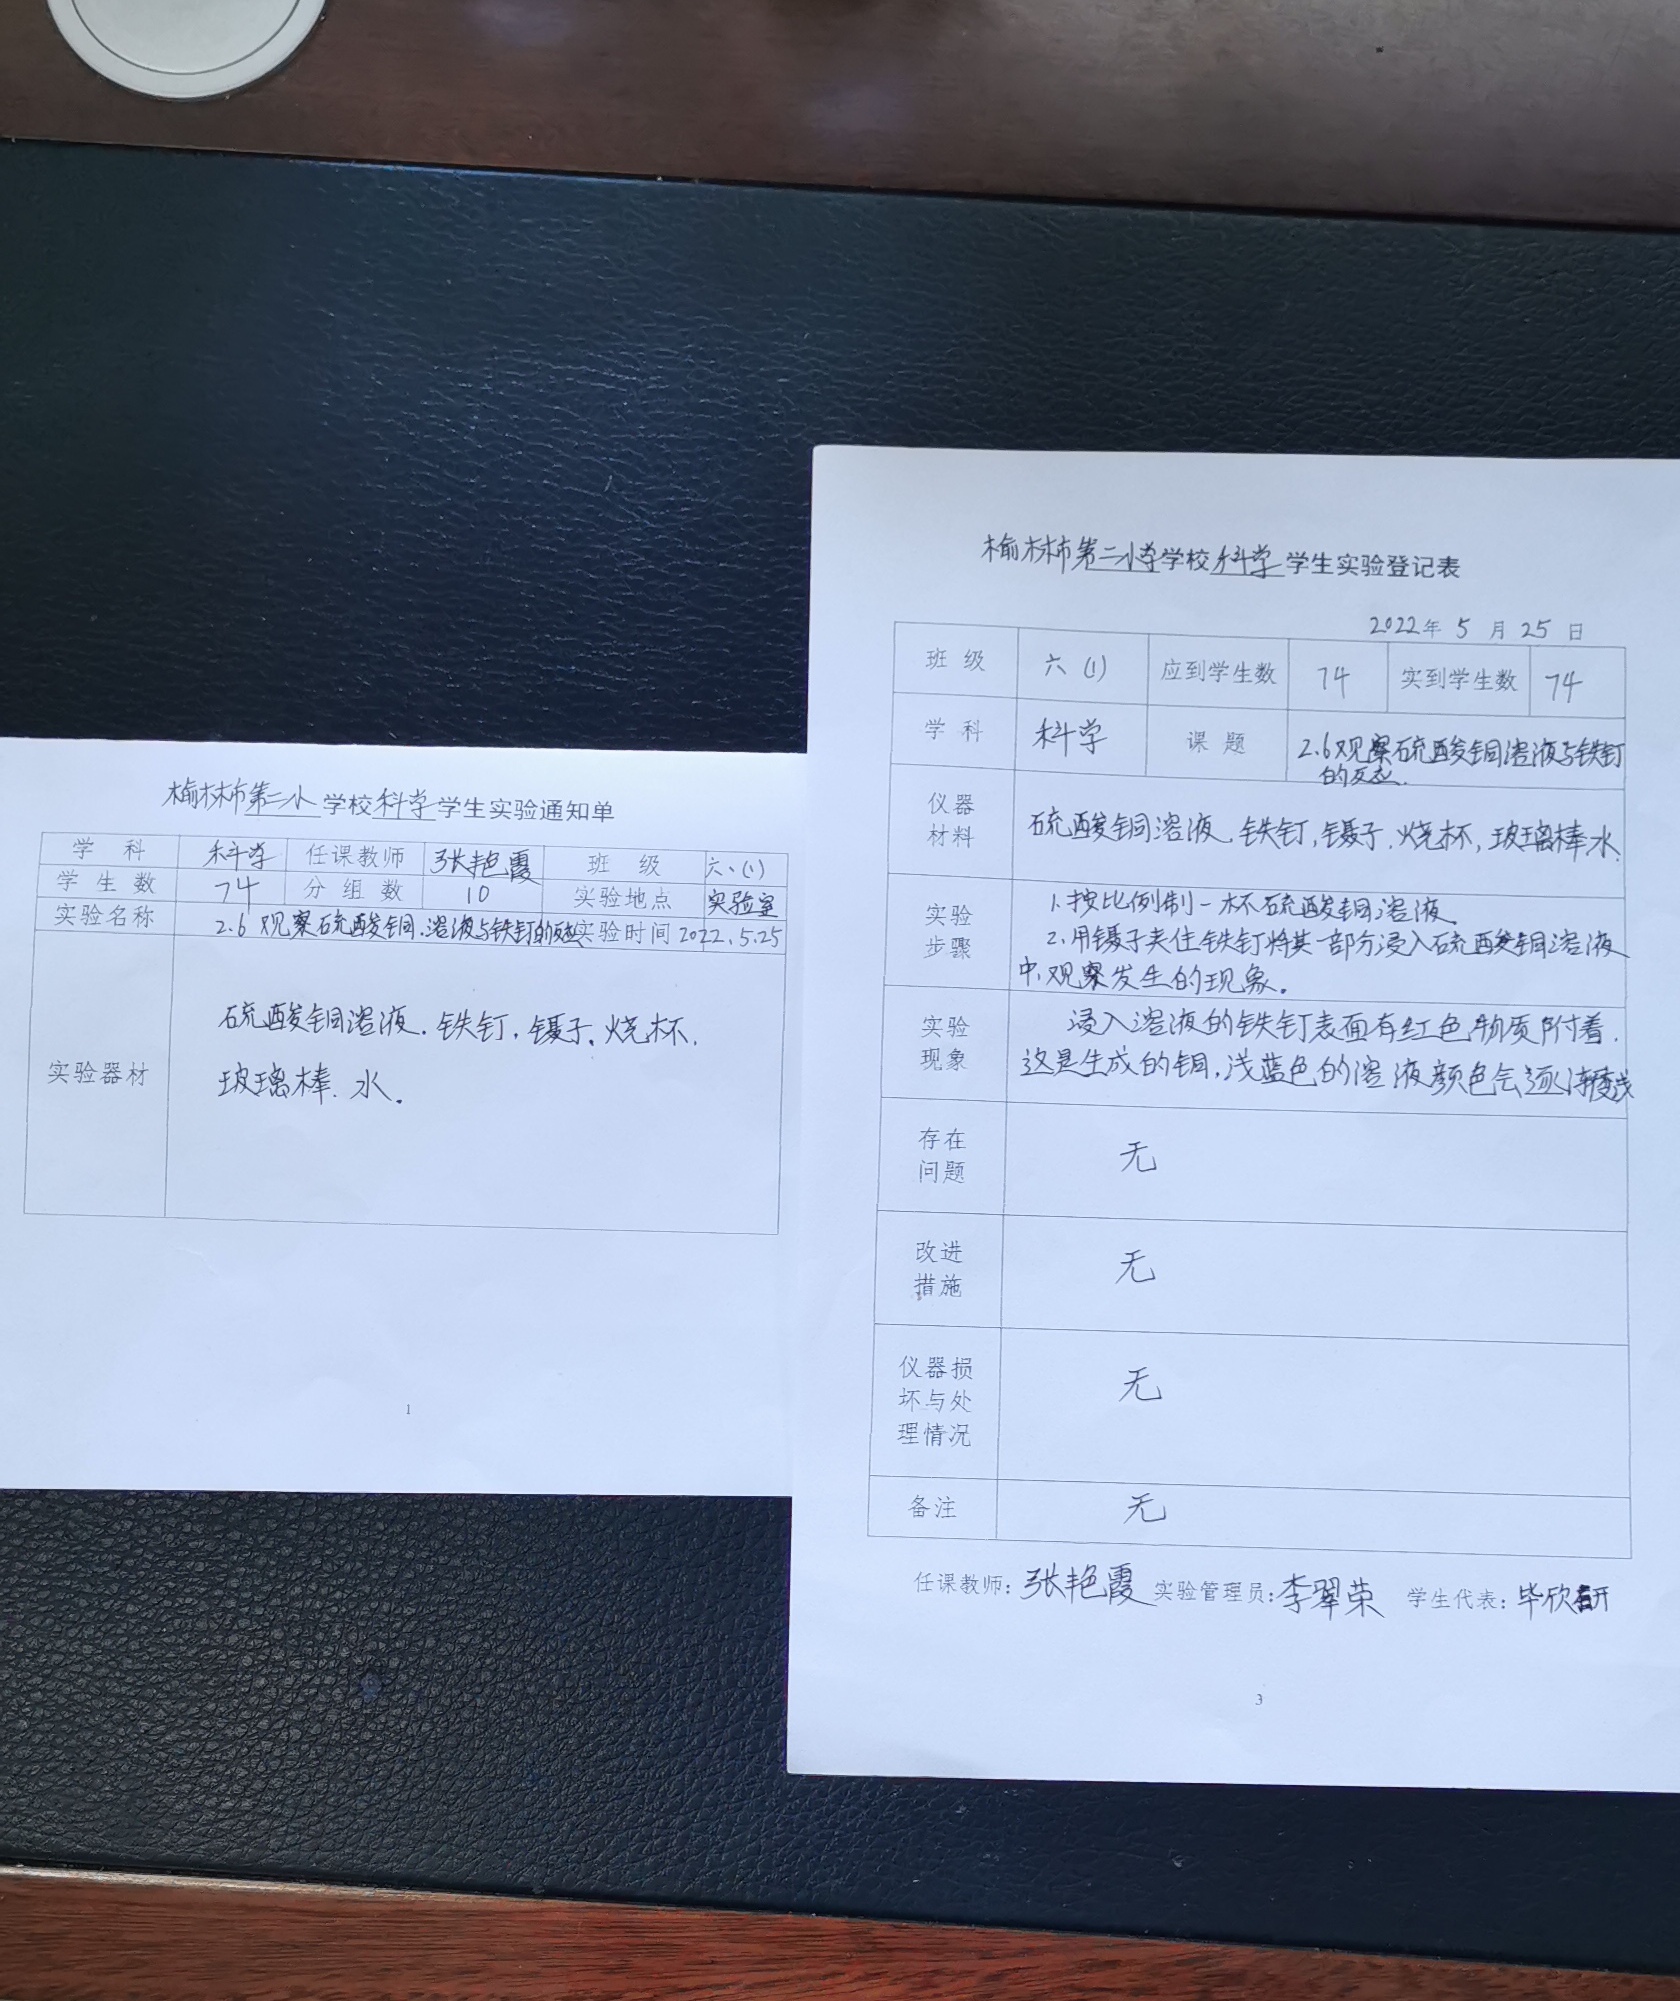 榆林市第二小学校科学学生实验通知单
学 科 科学 任课教师 张艳霞 班 级 六、(1)
学生数 74 分组数 10 实验地点 实验室
实验名称 2.6 观察硫酸铜溶液与铁钉的反应 实验时间 2022.5.25
实验器材
硫酸铜溶液.铁钉,镊子.烧杯.
玻璃棒.水.
1
榆林市第二小学学校科学学生实验登记表
2022年 5 月 25 日
班 级 六(1) 应到学生数 74 实到学生数 74
学 科 科学 课 题 2.6观察硫酸铜溶液与铁钉
的反应.
仪器
材料
硫酸铜溶液.铁钉,镊子.烧杯,玻璃棒.水.
实验
步骤
1.按比例制一杯硫酸铜溶液。
2.用镊子夹住铁钉将其一部分浸入硫酸铜溶液
中,观察发生的现象。
实验
现象
浸入溶液的铁钉表面有红色物质附着.
这是生成的铜,浅蓝色的溶液颜色会逐渐变浅
存在
问题
无
改进
措施
无
仪器损
坏与处
理情况
无
备注 无
任课教师:张艳霞 实验管理员:李翠荣 学生代表:毕欣研
3